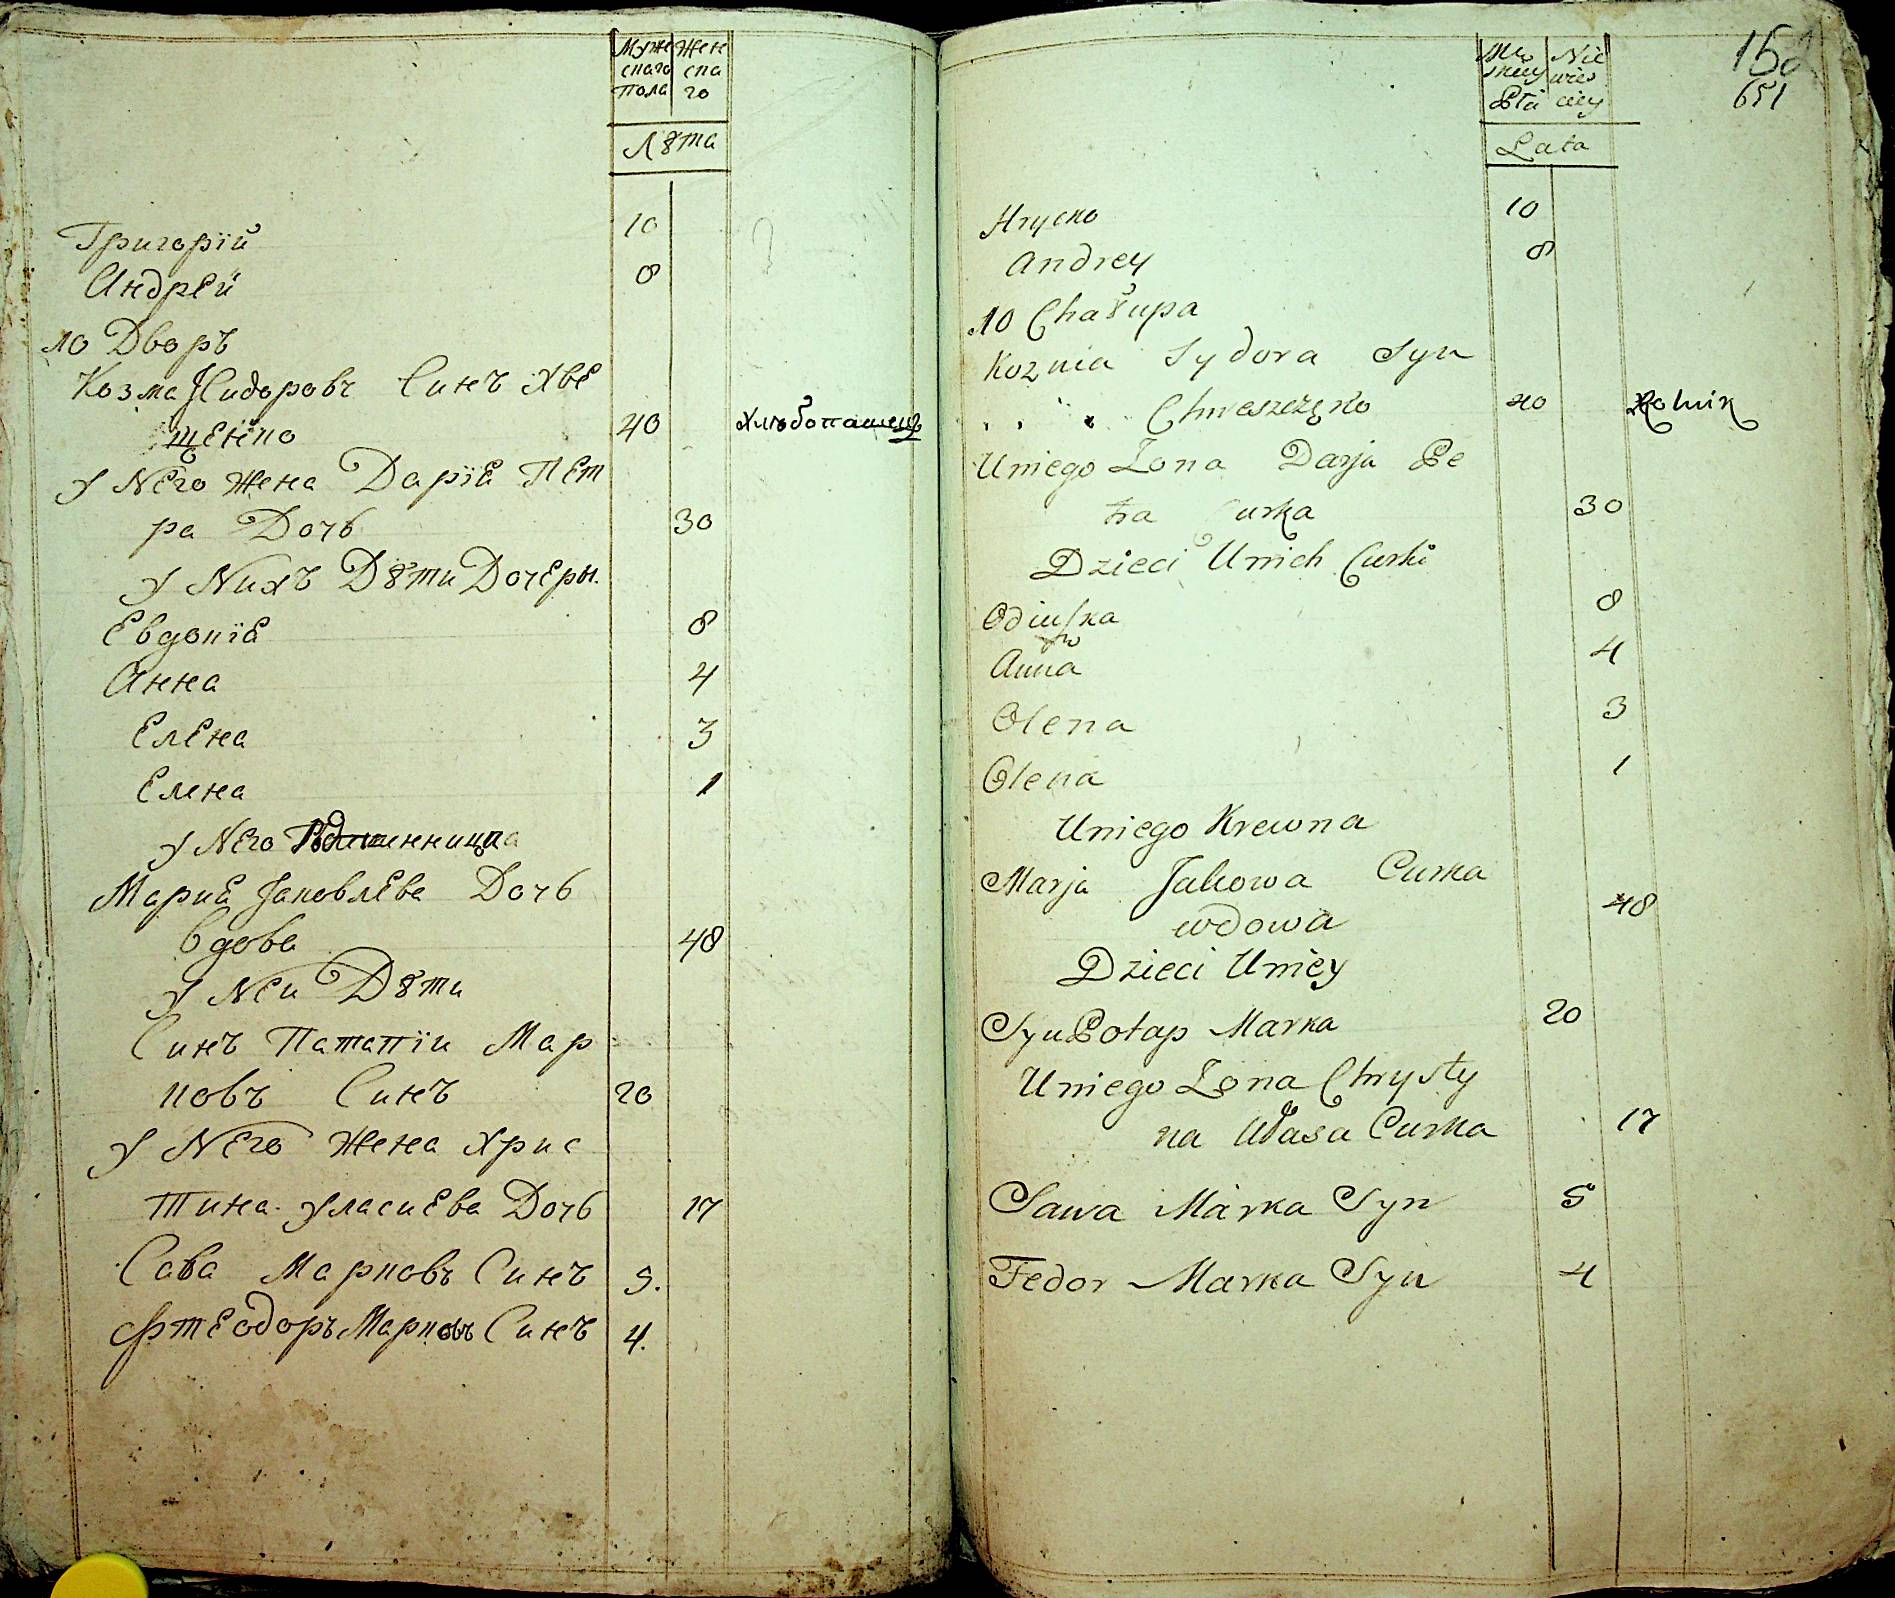 Муже Жен
скаго ска
Пола го
Лѣта
Григорїй 10
Андрей 8
10 Дворъ
Козма Сидоровъ Синъ Хве
щенко 40 Хлѣбопашецъ
у Него Жена Дарїя Пет
ра Дочь 30
у Нихъ Дѣти Дочеры
Евдокїя 8
Анна 4
Елена 3
Елена 1
у Него
Мария Яковлева Дочь
вдова 48
у Неи Дѣти
Синъ Патапїи Мар
ковъ Синъ 20
у Него Жена Хрис
тина Уласиева Дочь 17
Сава Марковъ Синъ 5.
Фтеодоръ Марковъ Синъ 4.
651
Mę Nie
skiey wies
Płci ciey
Lata
Hrycko 10
Andrey 8
10 Chałupa
Kozma Sydora Syn
Chweszczęko 40 Rolnik
Uniego Zona Darja Pe
tra Curka 30
Dzieci Unich Curki
Odiuska 8
Anna 4
Olena 3
Olena 1
Uniego Krewna
Marja Jakowa Curka
wdowa 48
Dzieci Uniey
Syn Potap Marka 20
Uniego Zona Chrysty
na Własa Curka 17
Sawa Marka Syn 5
Fedor Marka Syn 4